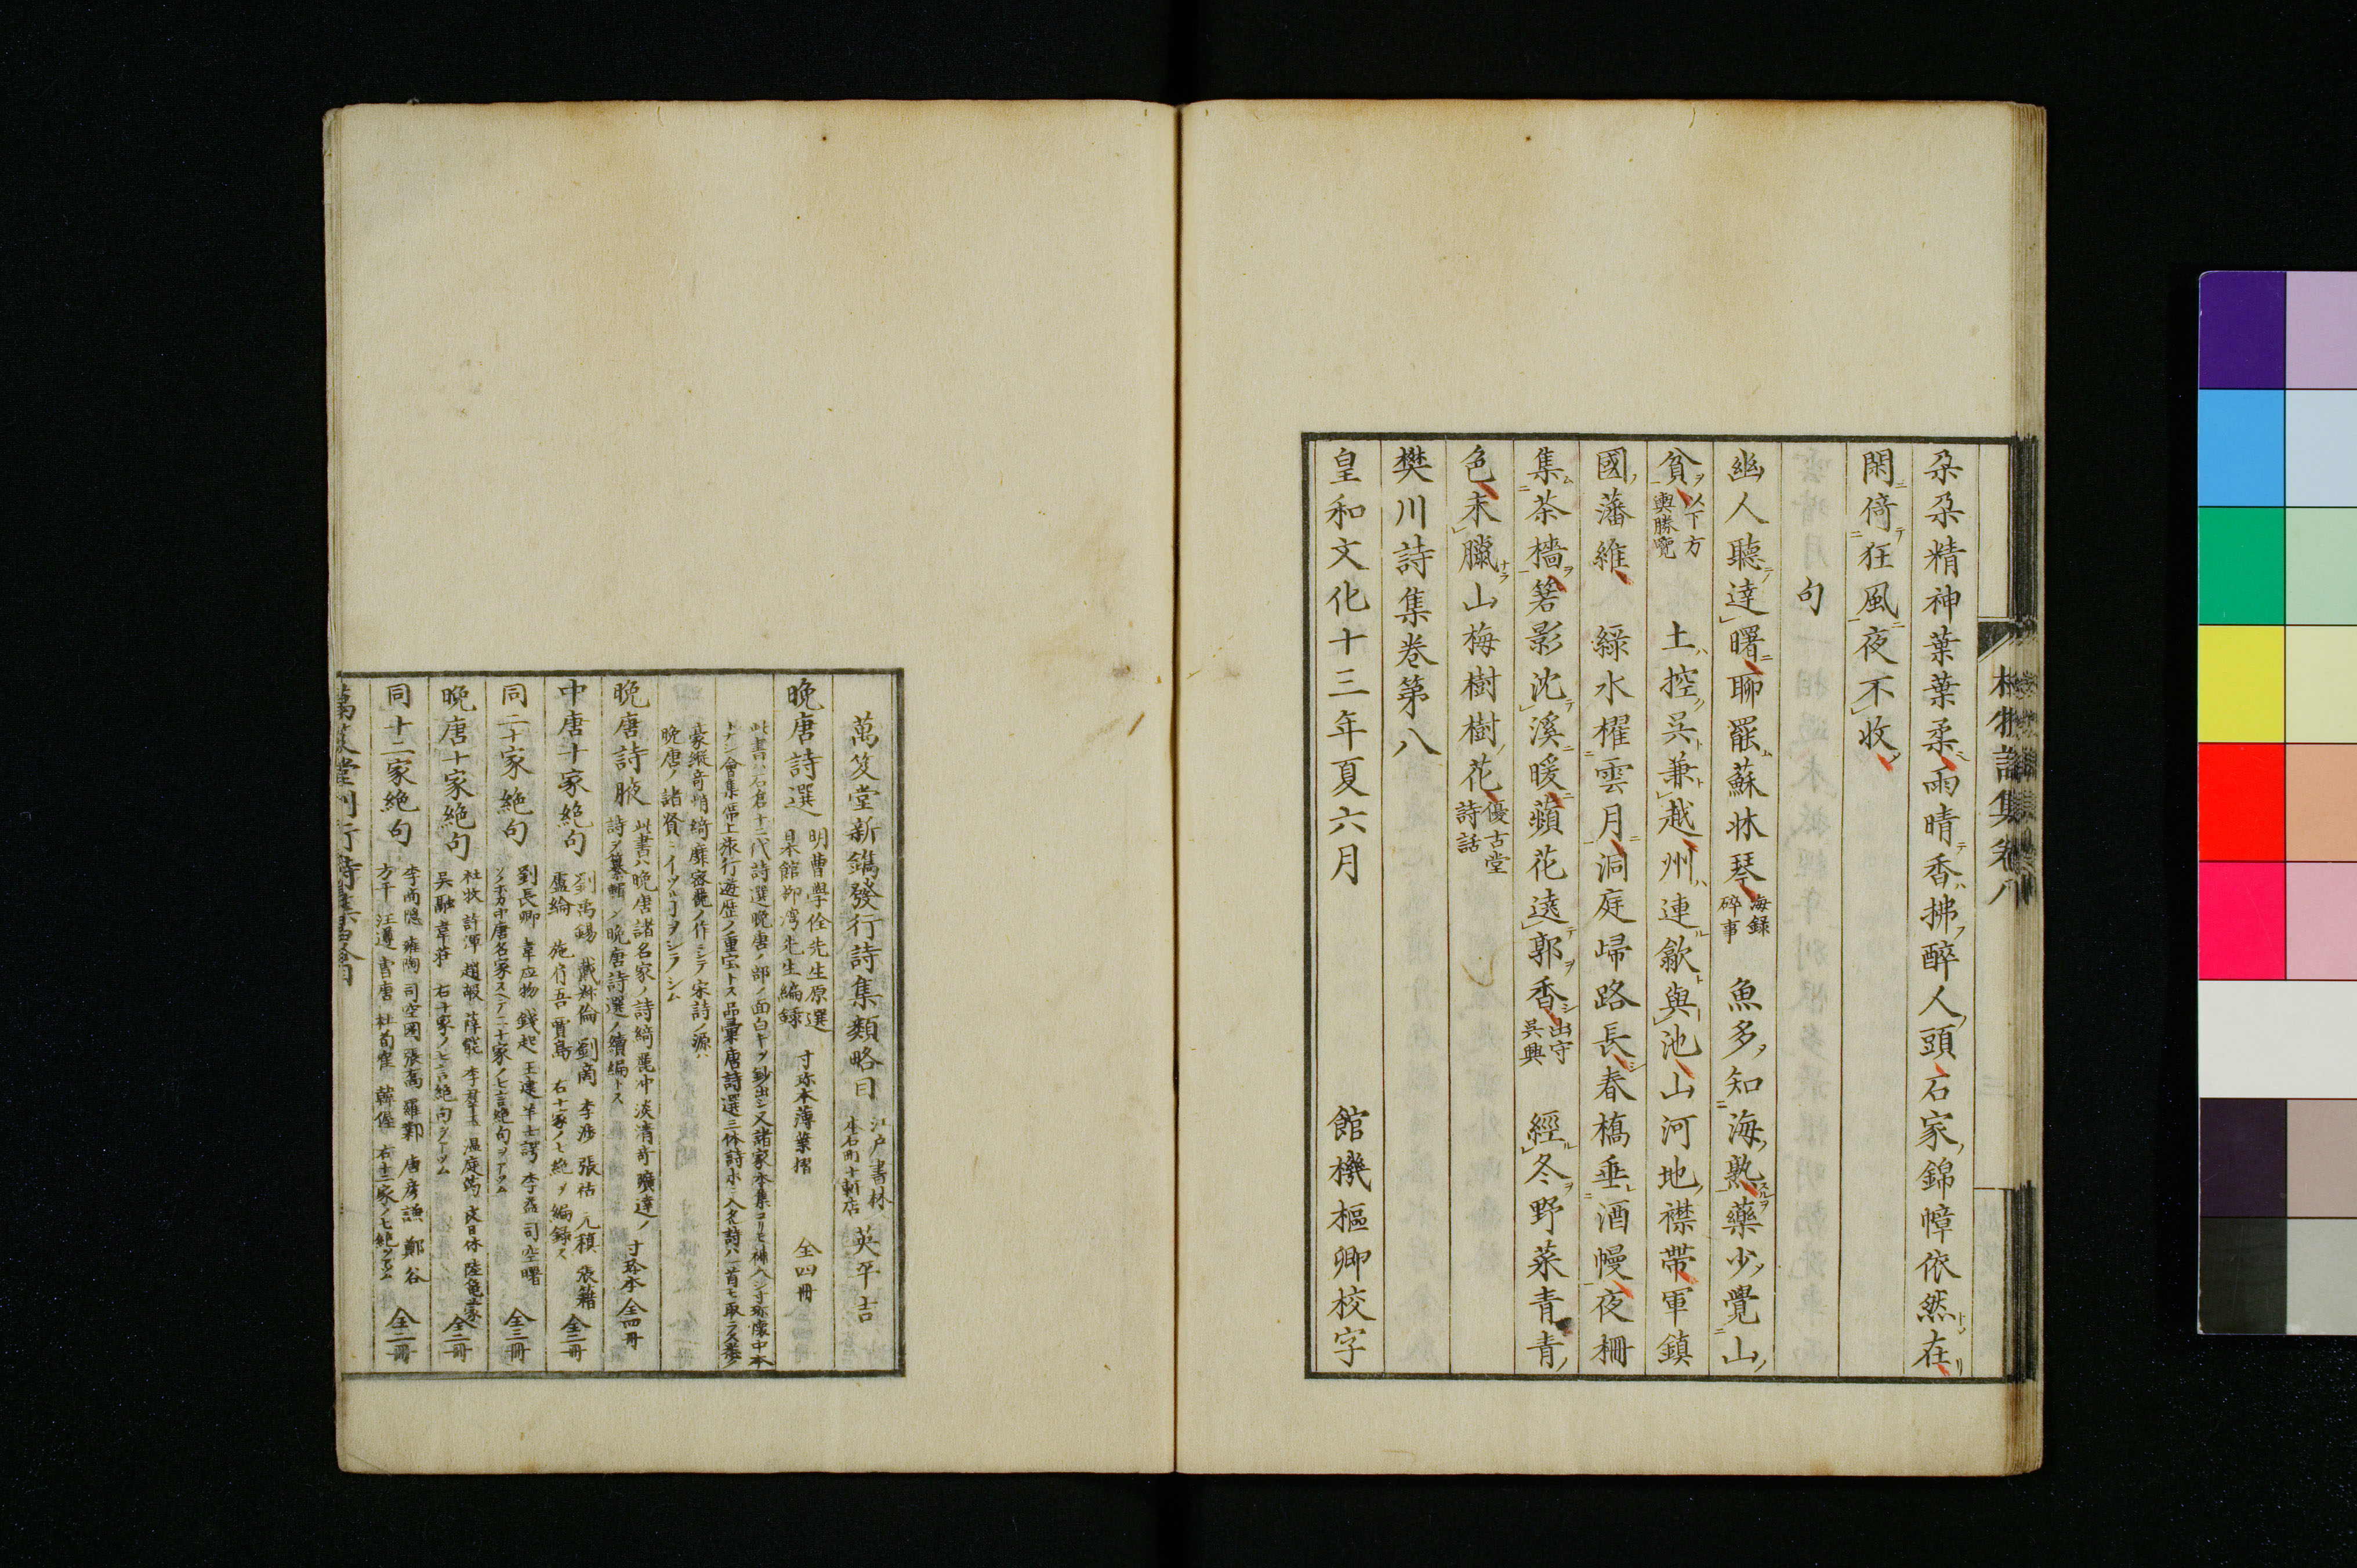 朶朶精神葉葉柔雨晴香拂醉人頭石家錦幛依然在
閑倚狂風夜不收
句
幽人聽達曙聊罷蘇牀琴
海録
碎事
魚多知海熟藥少覺山
貧
以下方
輿勝覽
土控呉兼越州連歙與池山河地襟帶軍鎮
國藩維
緑水櫂雲月洞庭歸路長春橋垂酒幔夜柵
集茶檣箬影沈溪暖蘋花遶郭香
出守
呉興
經冬野菜青青
色未臘山梅樹樹花
優古堂
詩話
樊川詩集卷第八
皇和文化十三年夏六月
館機樞卿校字
萬笈堂新鐫發行詩集類略目
江戸書林
本石町十軒店
英平吉
晩唐詩選
明曹學佺先生原選
館柳湾先生編録
寸珎本薄葉摺
全四冊
此書ハ石倉十二代詩選晩唐ノ部ノ面白キヲ鈔出シ又諸家本集ヨリモ補入シ寸珎懐中本
豪縦奇峭綺靡密麗ノ作ニシテ宋詩ノ源ハ
晩唐ノ諸賢ニイヅル
晩唐詩腋
此書ハ晩唐諸名家ノ詩綺麗冲淡清奇曠達ノ
詩ヲ纂輯シ晩唐詩選ノ續編トス
寸珎本全四冊
中唐十家絶句
劉禹錫 戴叔倫 劉商 李渉 張祜 元稹 張籍
盧綸 施肩吾 賈島 右十家ノ七絶ヲ編録ス
全三冊
同二十家絶句
劉長卿 韋應物 錢起 王建 羊士諤 李益 司空曙
全三冊
晩唐十家絶句
杜牧 許渾 趙嘏 薛能 李群玉 温庭筠 皮日休 陸亀蒙
呉融 韋荘 右十家ノ七言絶句ヲアツム
全二冊
同十二家絶句
李商隠 雍陶 司空圖 張喬 羅鄴 唐彦謙 鄭谷
方干 汪遵 曹唐 杜荀鶴 韓偓 右十二家ノ七絶ヲアツム
全二冊